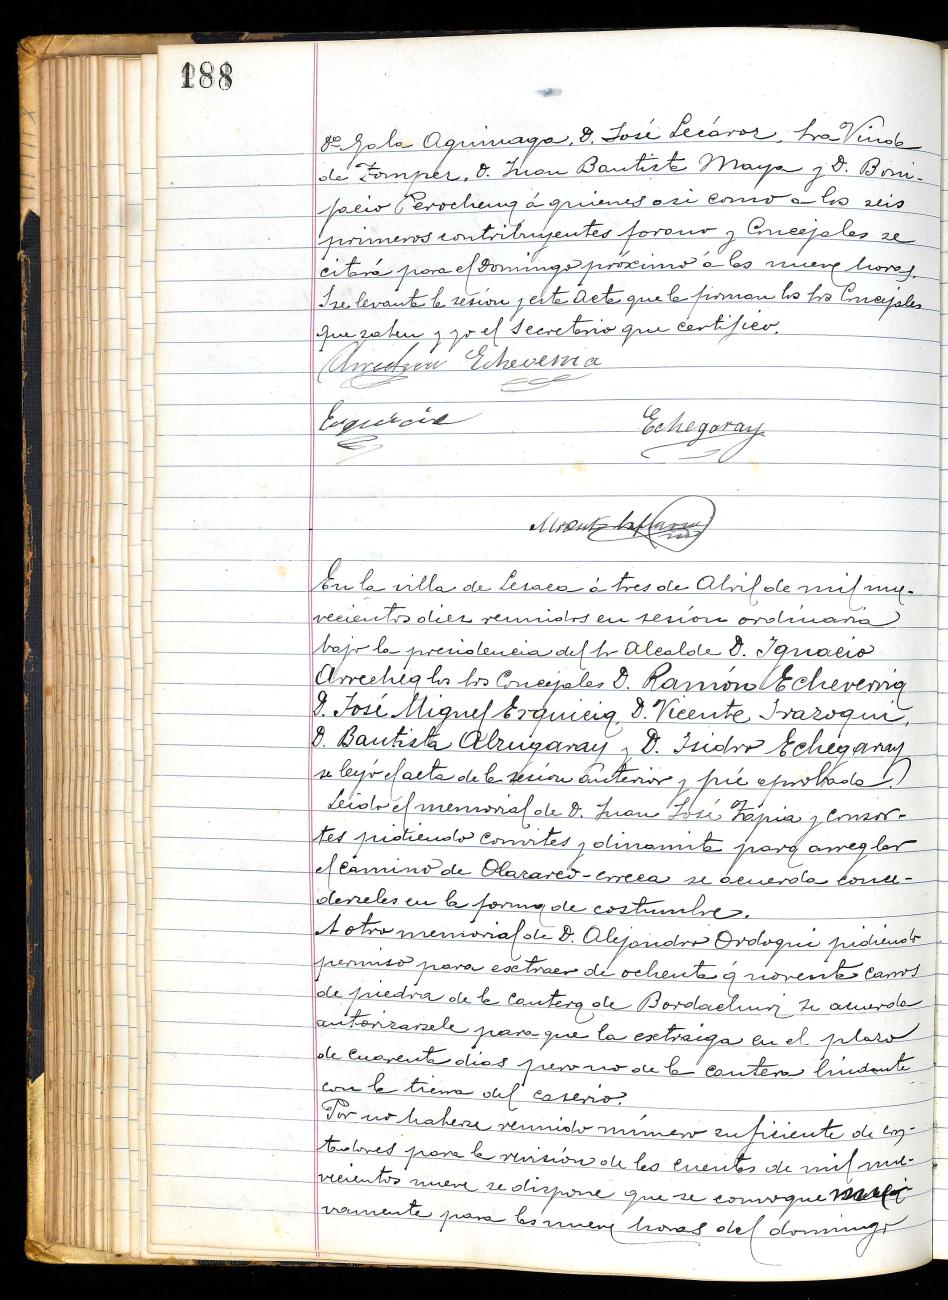 188
Dª Gala Aguinaga, D. José Lecároz, Sra Viuda
de Fomper, D. Juan Bautista Maya y D. Boni-
facio Perochena á quienes asi como a los seis
primeros contribuyentes forano y Concejales se
citará para el Domingo próximo á las nueve horas.
I se levanta la sesión y esta Acta que la firman los Srs Concejales
que saben y yo el Secretario que certifico.
Arrechea Echeverria
Esquicia Echegaray
En la villa de Lesaca á tres de Abril de mil nu-
vecientos diez reunidos en sesión ordinaria
bajo la presidencia del Sr Alcalde D. Ignacio
Arrechea los Srs Concejales D. Ramón Echeverria
D. José Miguel Esquicia, D. Vicente Irazoqui,
D. Bautista Alzugaray y D. Isidro Echegaray
se leyó el acta de la sesión anterior y fué aprobada.
Leido el memorial de D. Juan José Tapia y consor-
tes pidiendo convites y dinamita para arreglar
el camino de Olazarco-erreca se acuerda conce-
derseles en la forma de costumbre.
A otro memorial de D. Alejandro Ordoqui pidiendo
permiso para extraer de ochenta á noventa carros
de piedra de la cantera de Bordachuri se acuerda
autorizarsele para que la extraiga en el plazo
de cuarenta dias pero no de la cantera lindante
con la tierra del caserio.
Por no haberse reunido número suficiente de con-
tadores para la revisión de las cuentas de mil nue-
vecientos nueve se dispone que se convoque nuei-
vamente para las nueve horas del domingo